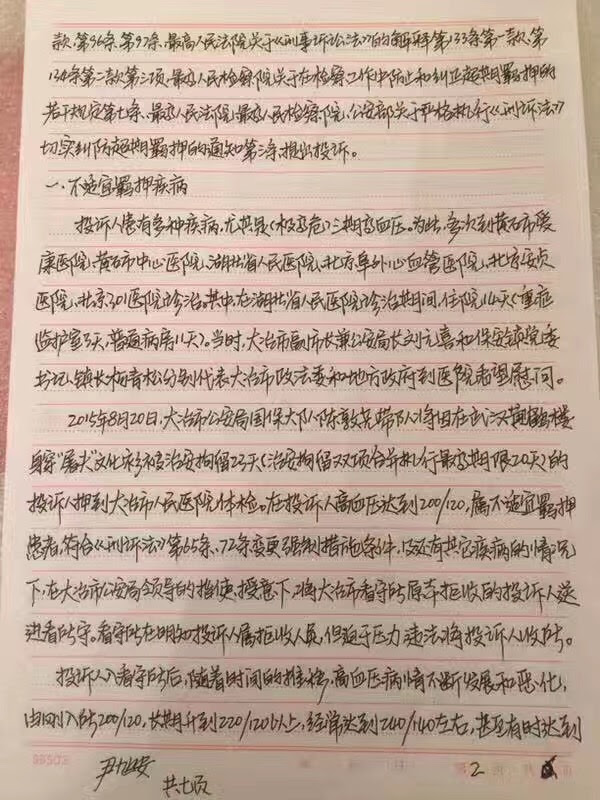 款、第96条、第97条、最高人民法院关于《刑事诉讼法》的解释第133条第一款、第
134条第二款第三项、最高人民检察院关于在检察工作中防止和纠正超期羁押的
若干规定第七条、最高人民法院、最高人民检察院、公安部关于严格执行《刑诉法》
切实纠防超期羁押的通知第三条提出投诉。
一、不适宜羁押疾病
投诉人患有多种疾病,尤其是(极高危)三期高血压。为此,多次到黄石市爱
康医院、黄石市中心医院、湖北省人民医院、北京阜外心血管医院、北京安贞
医院、北京301医院诊治。其中,在湖北省人民医院诊治期间,住院14天(重症
监护室3天,普通病房11天)。当时,大冶市副市长兼公安局长刘元喜和保安镇党委
书记、镇长柯青松分别代表大冶市政法委和地方政府到医院看望慰问。
2015年8月20日,大冶市公安局国保大队陈敦 带队将因在武汉黄鹤楼
身穿"屠夫"文化衫被治安拘留23天(治安拘留双项合并执行最高期限20天)的
投诉人押到大冶市人民医院体检。在投诉人高血压达到200/120,属不适宜羁押
患者,符合《刑诉法》第65条、72条变更强制措施条件,及还有其它疾病的情况
下,在大冶市公安局领导的指使、授意下,将大冶市看守所原本拒收的投诉人送
进看守所。看守所在明知投诉人属拒收人员,但迫于压力违法将投诉人收所。
投诉人入看守所后,随着时间的推移,高血压病情不断发展和恶化,
由刚入所200/120,长期升到220/120以上,经常达到240/140左右,甚至有时达到
尹 安
共七页
第2页